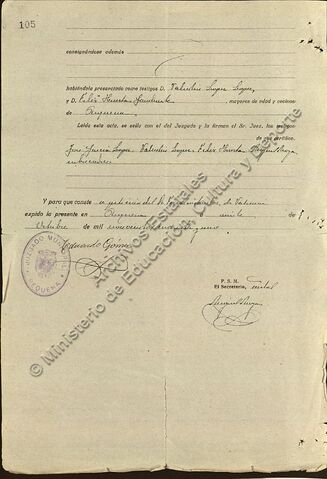 105
consignándose además
habiéndola presenciado como testigos D. Valentín López López,
y D. Félix Huerta, mayores de edad y vecinos
de Requena
Leída este acta, se sella con el del Juzgado y la firman el Sr. Juez, los testigos
de que certifico.
José García López Valentín López Félix Huerta
Y para que conste a petición del de Valencia
expido la presente en Requena a de
Octubre de mil novecientos
Eduardo Gómez
JUZGADO MUNICIPAL
REQUENA
P. S. M.
El Secretario,
© Ministerio de Educación, Cultura y Deporte
Archivos Estatales